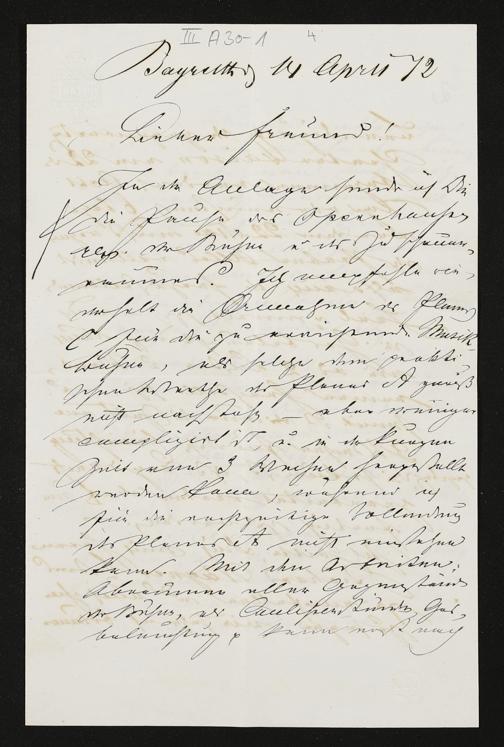 III A 30-1 4
Bayreuth, 14 April 72
Lieber Freund!
In der Anlage sende ich Dir
die Pause des Opernhauses
resp. der Bühne u. des Zuschauer-
raumes. Ich empfehle
die Annahme des Planes
C für die zu errichtende Musik
bühne, als solche dem prakti-
schen Werthe des Planes A gewiß
nicht nachsteht – aber weniger
complizirt ist u. in der kurzen
Zeit von 3 Wochen hergestellt
werden kann, während ich
für die rechtzeitige Vollendung
des Planes A nicht einstehen
kann. Mit den Arbeiten,
Abräumen aller Gegenstände
der Bühne, als Coulissenständer, Gas-
beleuchtung kann erst nach